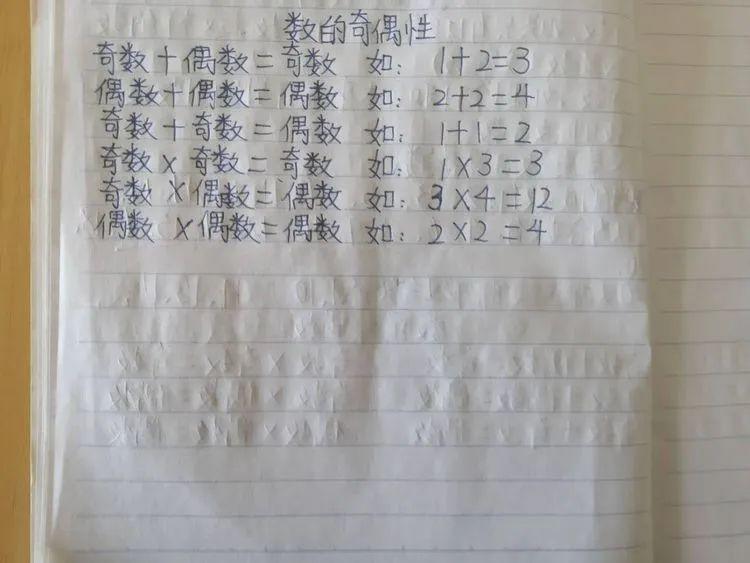 数的奇偶性
奇数+偶数=奇数 如: 1+2=3
偶数+偶数=偶数 如: 2+2=4
奇数+奇数=偶数 如: 1+1=2
奇数×奇数=奇数 如: 1×3=3
奇数×偶数=偶数 如: 3×4=12
偶数×偶数=偶数 如: 2×2=4